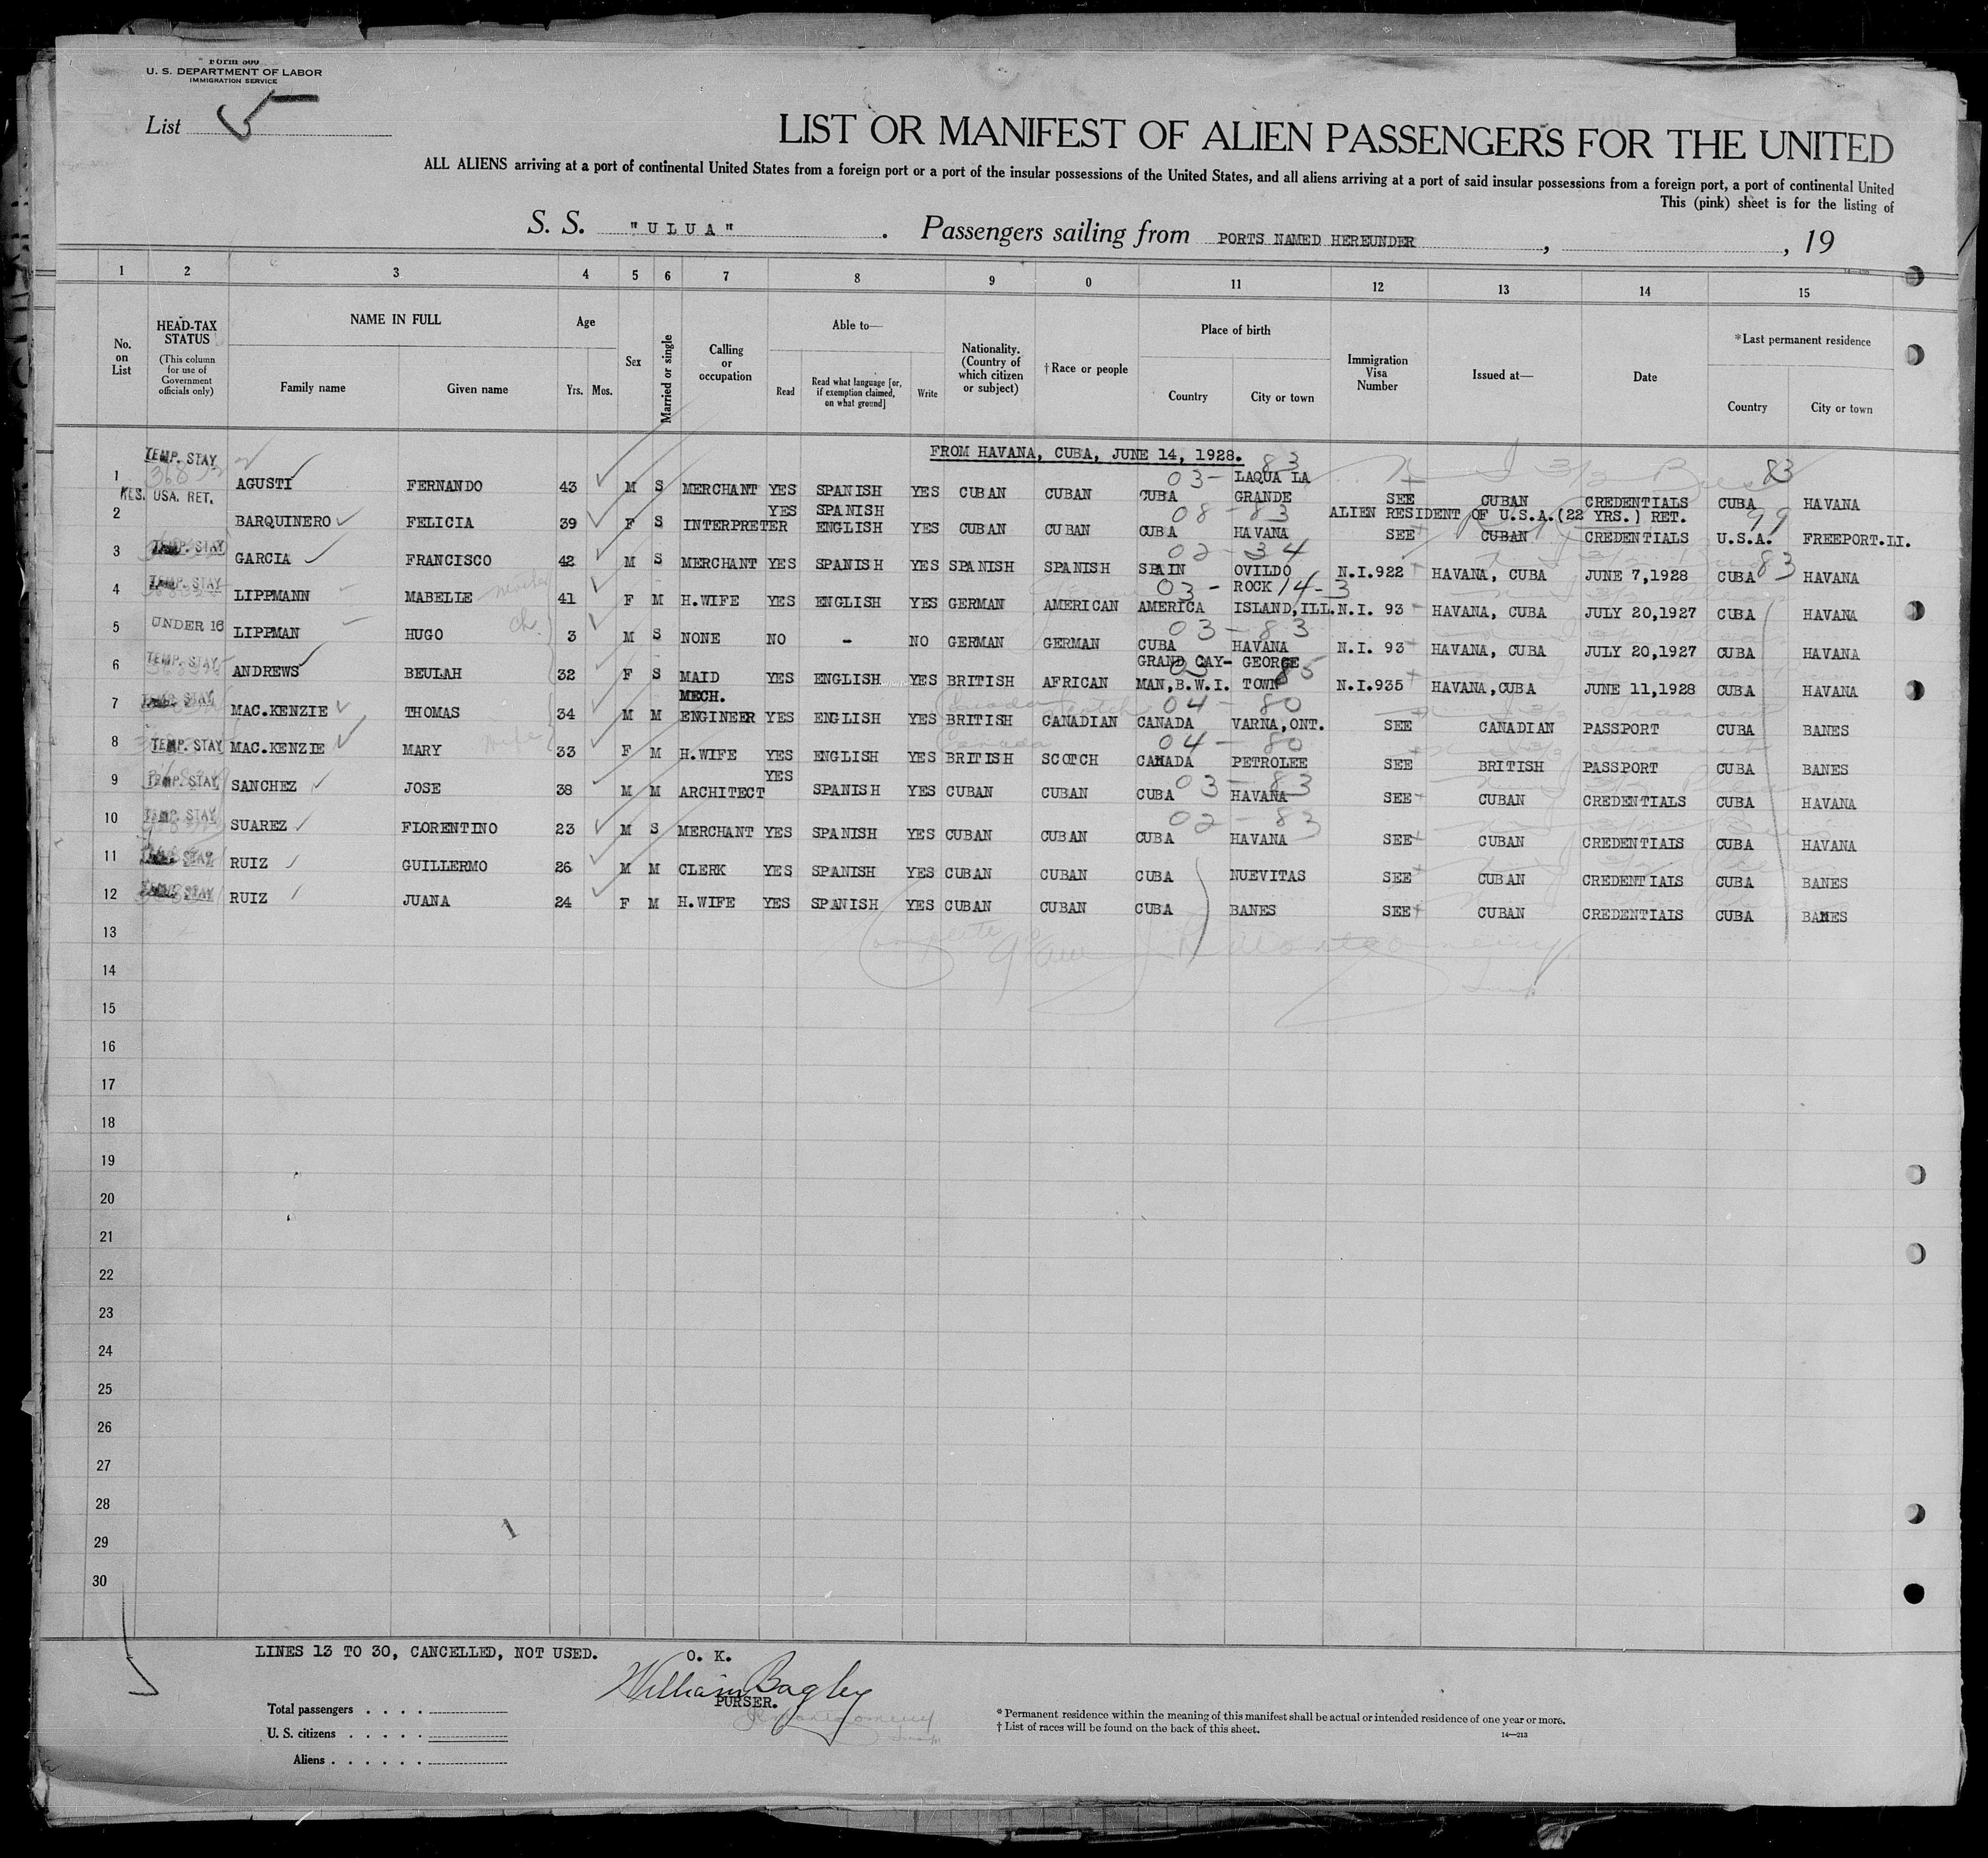 Form 500
U. S. DEPARTMENT OF LABOR
IMMIGRATION SERVICE
List 5
LIST OR MANIFEST OF ALIEN PASSENGERS FOR THE UNITED
ALL ALIENS arriving at a port of continental United States from a foreign port or a port of the insular possessions of the United States, and all aliens arriving at a port of said insular possessions from a foreign port, a port of continental United
This (pink) sheet is for the listing of
S. S. "ULUA" . Passengers sailing from PORTS NAMED HEREUNDER , , 19
1 2 3 4 5 6 7 8 9 0 11 12 13 14 15
No. on List
HEAD-TAX STATUS (This column for use of Government officials only)
NAME IN FULL Family name Given name
Age Yrs. Mos.
Sex
Married or single
Calling or occupation
Able to— Read Read what language [or, if exemption claimed, on what ground] Write
Nationality. (Country of which citizen or subject)
† Race or people
Place of birth Country City or town
Immigration Visa Number
Issued at—
Date
* Last permanent residence Country City or town
FROM HAVANA, CUBA, JUNE 14, 1928.
1 TEMP. STAY AGUSTI FERNANDO 43 M S MERCHANT YES SPANISH YES CUBAN CUBAN CUBA LAQUA LA GRANDE SEE CUBAN CREDENTIALS CUBA HAVANA
03- 83 83
2 RES. USA. RET. BARQUINERO FELICIA 39 F S INTERPRETER YES SPANISH ENGLISH YES CUBAN CUBAN CUBA HAVANA SEE CUBAN CREDENTIALS U.S.A. FREEPORT.LI.
ALIEN RESIDENT OF U.S.A.(22 YRS.) RET.
08-83 99
3 TEMP. STAY GARCIA FRANCISCO 42 M S MERCHANT YES SPANISH YES SPANISH SPANISH SPAIN OVILDO N.I.922 HAVANA, CUBA JUNE 7,1928 CUBA HAVANA
02-34 83
4 TEMP. STAY LIPPMANN MABELLE mother 41 F M H.WIFE YES ENGLISH YES GERMAN AMERICAN AMERICA ROCK ISLAND,ILL. N.I. 93 HAVANA, CUBA JULY 20,1927 CUBA HAVANA
03- 14-3
5 UNDER 16 LIPPMAN HUGO ch. 3 M S NONE NO - NO GERMAN GERMAN CUBA HAVANA N.I. 93 HAVANA, CUBA JULY 20,1927 CUBA HAVANA
03-83
6 TEMP. STAY ANDREWS BEULAH 32 F S MAID YES ENGLISH YES BRITISH AFRICAN GRAND CAY- MAN,B.W.I. GEORGE TOWN N.I.935 HAVANA,CUBA JUNE 11,1928 CUBA HAVANA
85
7 TEMP. STAY MAC.KENZIE THOMAS 34 M M MECH. ENGINEER YES ENGLISH YES BRITISH CANADIAN CANADA VARNA,ONT. SEE CANADIAN PASSPORT CUBA BANES
Canada Scotch 04-80
8 TEMP. STAY MAC.KENZIE MARY wife 33 F M H.WIFE YES ENGLISH YES BRITISH SCOTCH CANADA PETROLEE SEE BRITISH PASSPORT CUBA BANES
Canada 04-80
9 TEMP. STAY SANCHEZ JOSE 38 M M ARCHITECT YES SPANISH YES CUBAN CUBAN CUBA HAVANA SEE CUBAN CREDENTIALS CUBA HAVANA
03-83
10 TEMP. STAY SUAREZ FLORENTINO 23 M S MERCHANT YES SPANISH YES CUBAN CUBAN CUBA HAVANA SEE CUBAN CREDENTIALS CUBA HAVANA
02-83
11 TEMP. STAY RUIZ GUILLERMO 26 M M CLERK YES SPANISH YES CUBAN CUBAN CUBA NUEVITAS SEE CUBAN CREDENTIALS CUBA BANES
12 TEMP. STAY RUIZ JUANA 24 F M H.WIFE YES SPANISH YES CUBAN CUBAN CUBA BANES SEE CUBAN CREDENTIALS CUBA BANES
13
Complete Montgomery
14
15
16
17
18
19
20
21
22
23
24
25
26
27
28
29
30
LINES 13 TO 30, CANCELLED, NOT USED.
O. K.
William Bagley
PURSER.
Montgomery
Total passengers
U. S. citizens
Aliens
* Permanent residence within the meaning of this manifest shall be actual or intended residence of one year or more.
† List of races will be found on the back of this sheet.
14—213